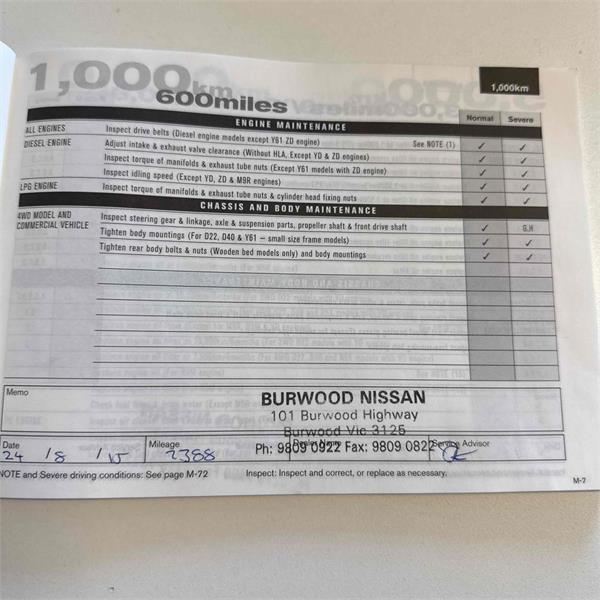 1,000km
600miles
1,000km
ENGINE MAINTENANCE Normal Severe
ALL ENGINES Inspect drive belts (Diesel engine models except Y61 ZD engine) ✓ ✓
DIESEL ENGINE Adjust intake & exhaust valve clearance (Without HLA, Except YD & ZD engines) See NOTE (1) ✓ ✓
Inspect torque of manifolds & exhaust tube nuts (Except Y61 models with ZD engine) ✓ ✓
Inspect idling speed (Except YD, ZD & M9R engines) ✓ ✓
LPG ENGINE Inspect torque of manifolds & exhaust tube nuts & cylinder head fixing nuts ✓ ✓
CHASSIS AND BODY MAINTENANCE
4WD MODEL AND Inspect steering gear & linkage, axle & suspension parts, propeller shaft & front drive shaft ✓ G,H
COMMERCIAL VEHICLE Tighten body mountings (For D22, D40 & Y61 – small size frame models) ✓ ✓
Tighten rear body bolts & nuts (Wooden bed models only) and body mountings ✓ ✓
Memo
BURWOOD NISSAN
101 Burwood Highway
Burwood Vic 3125
Date Mileage Dealer Name Service Advisor
24 / 8 / 15 2388 Ph: 9809 0922 Fax: 9809 0822
NOTE and Severe driving conditions: See page M-72 Inspect: Inspect and correct, or replace as necessary.
M-7